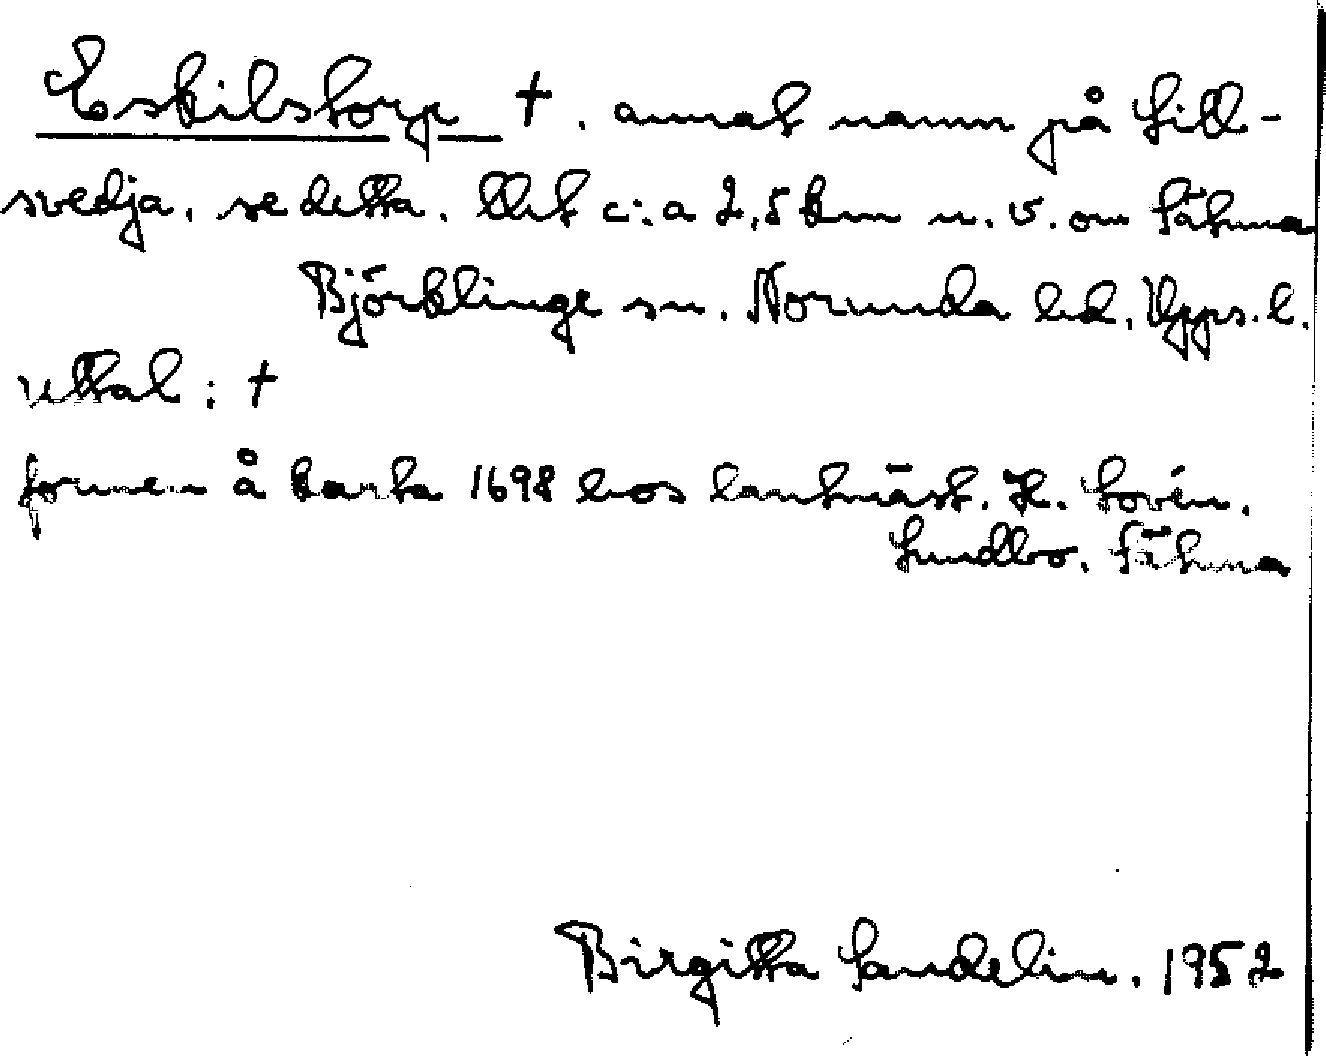 Eskilstorp †. annat namn på Lill-
svedja. se detta. Utb c:a 2,5 km n. v. om Sätuna
Björklinge sn. Norunda hd. Upps. l.
uttal: †
formen å karta 1698 hos lantmäst. H. Lovén.
Lundbo. Sätuna
Birgitta Sandelin. 1952